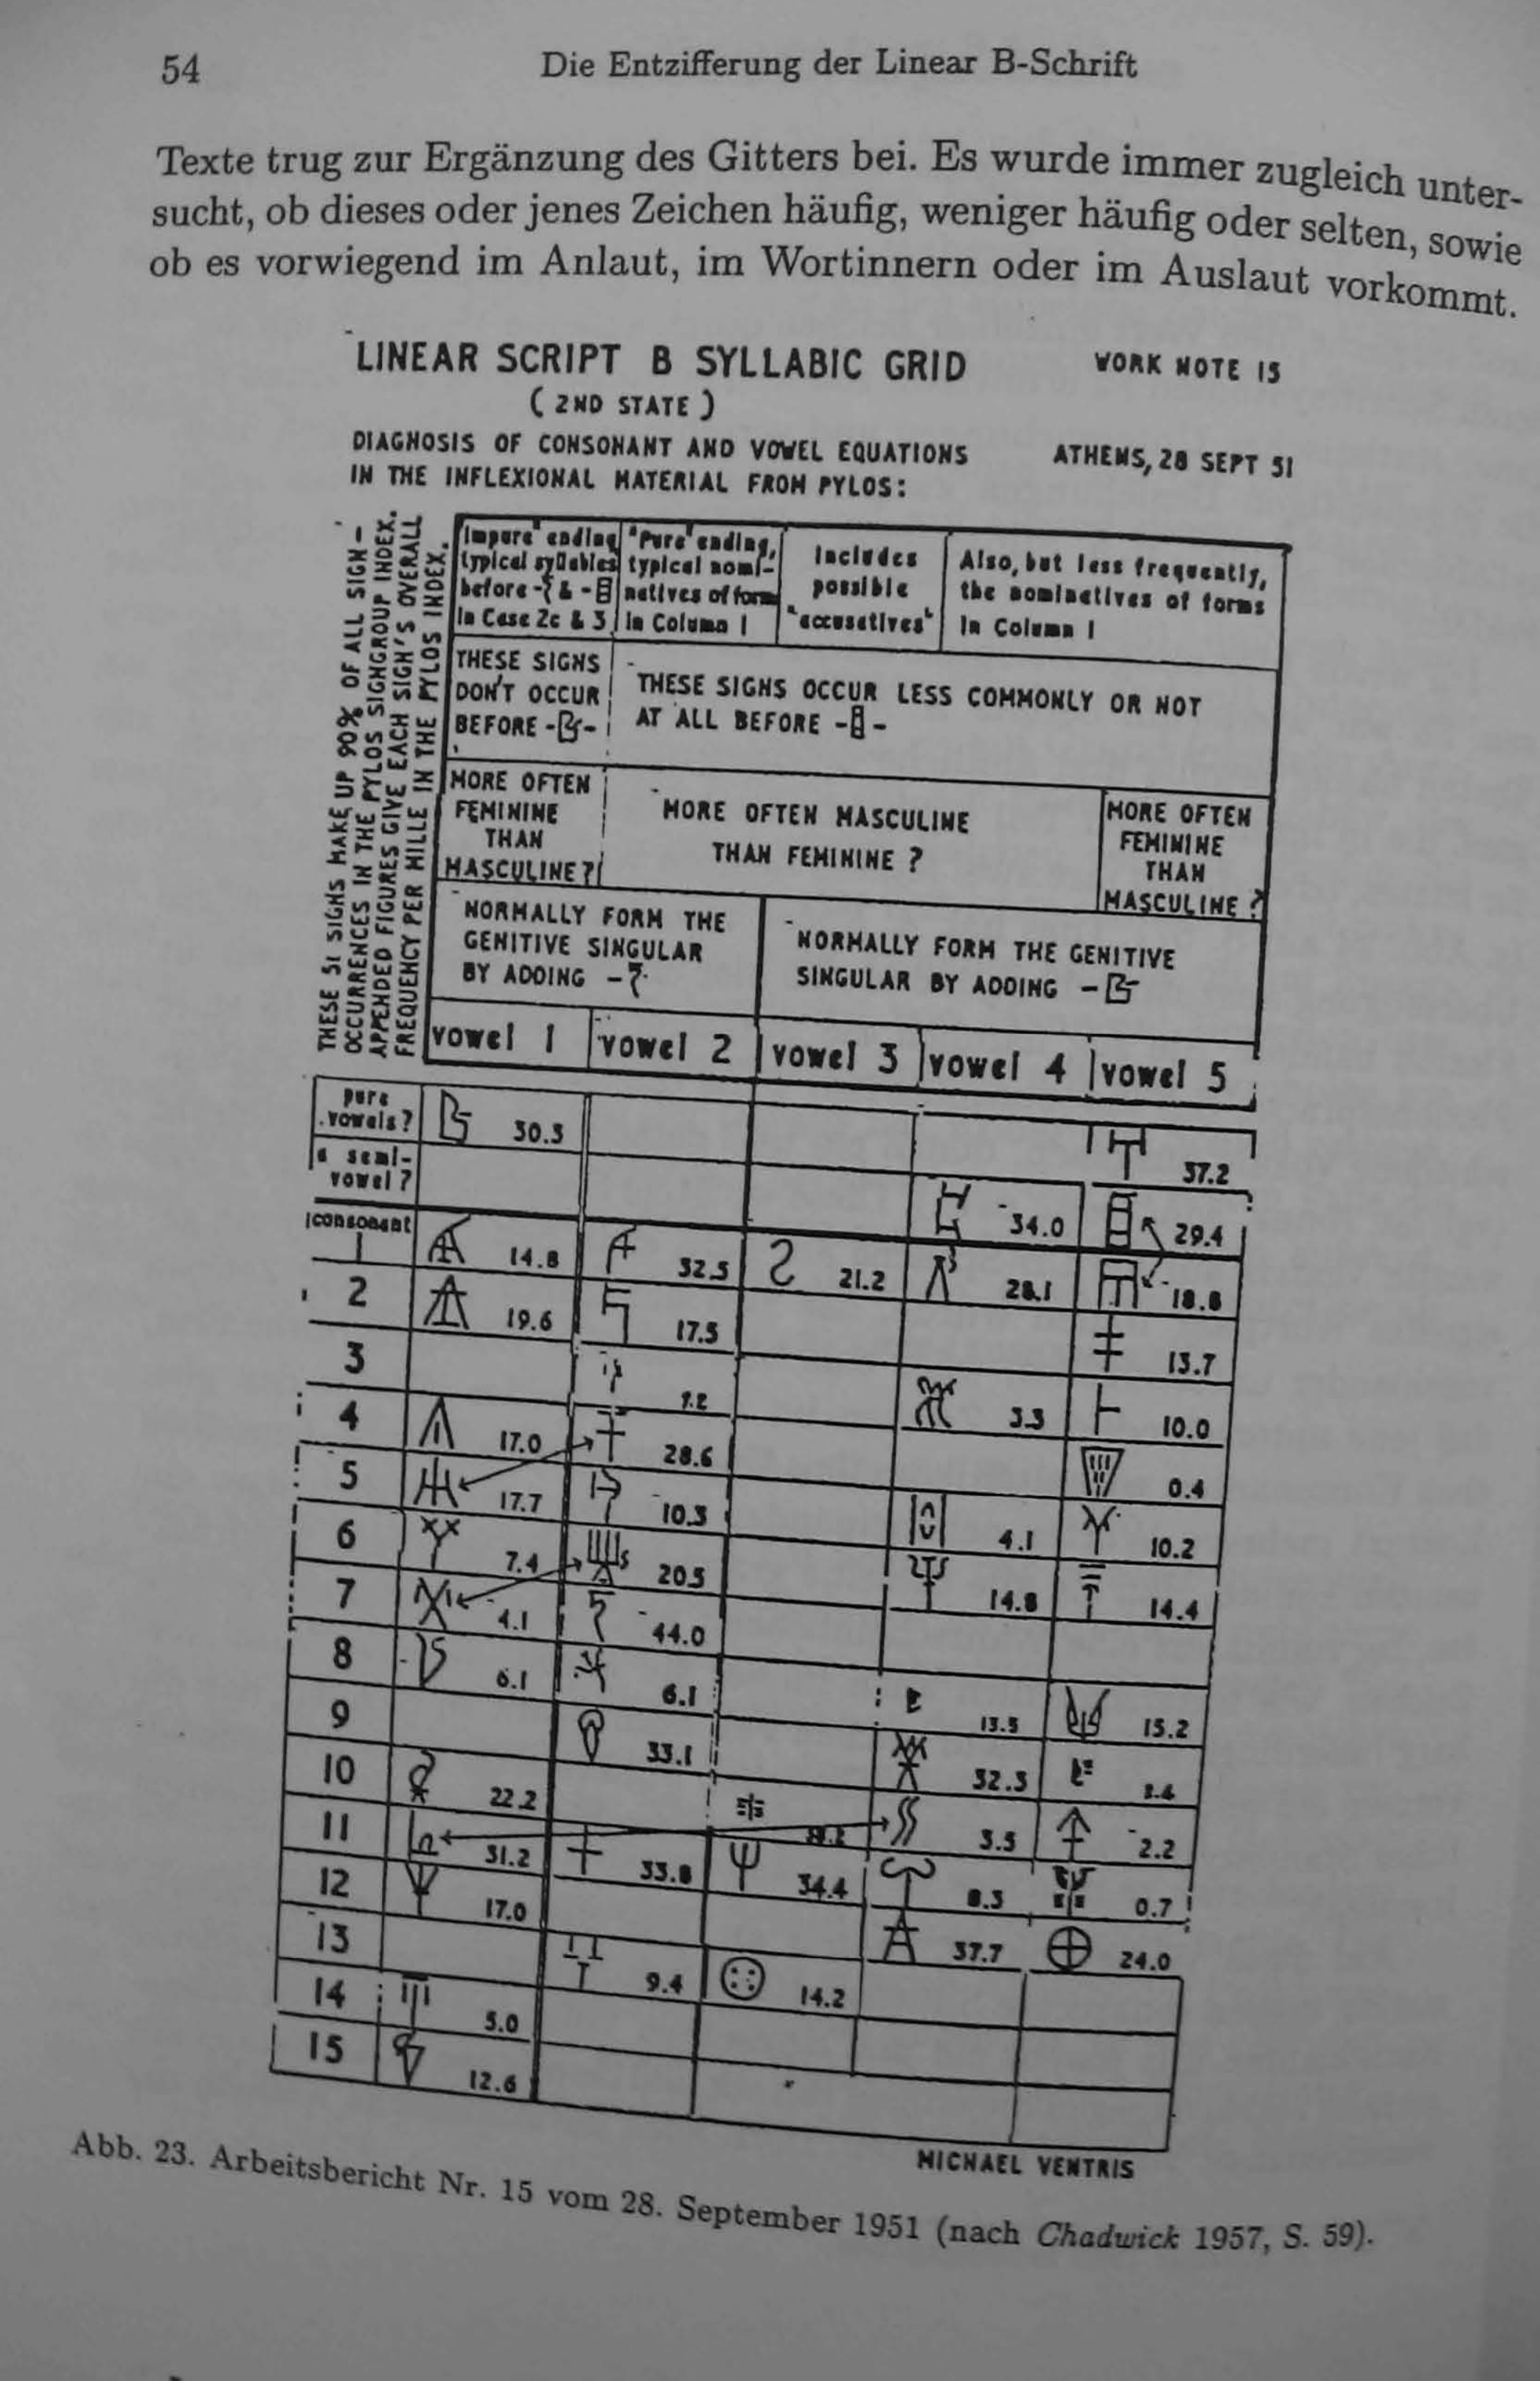 54
Die Entzifferung der Linear B-Schrift
Texte trug zur Ergänzung des Gitters bei. Es wurde immer zugleich unter-
sucht, ob dieses oder jenes Zeichen häufig, weniger häufig oder selten, sowie
ob es vorwiegend im Anlaut, im Wortinnern oder im Auslaut vorkommt.
LINEAR SCRIPT B SYLLABIC GRID
WORK NOTE 15
( 2ND STATE )
DIAGNOSIS OF CONSONANT AND VOWEL EQUATIONS
ATHENS, 28 SEPT 51
IN THE INFLEXIONAL MATERIAL FROM PYLOS:
THESE 51 SIGNS MAKE UP 90% OF ALL SIGN-
OCCURRENCES IN THE PYLOS SIGNGROUP INDEX.
APPENDED FIGURES GIVE EACH SIGN'S OVERALL
FREQUENCY PER MILLE IN THE PYLOS INDEX.
"Impure" ending,
typical syllables
before - & -
in Case 2c & 3
"Pure" ending,
typical nomi-
natives of forms
in Column 1
Includes
possible
"accusatives"
Also, but less frequently,
the nominatives of forms
in Column 1
THESE SIGNS
DON'T OCCUR
BEFORE - -
THESE SIGNS OCCUR LESS COMMONLY OR NOT
AT ALL BEFORE - -
MORE OFTEN
FEMININE
THAN
MASCULINE?
MORE OFTEN MASCULINE
THAN FEMININE ?
MORE OFTEN
FEMININE
THAN
MASCULINE ?
NORMALLY FORM THE
GENITIVE SINGULAR
BY ADDING -
NORMALLY FORM THE GENITIVE
SINGULAR BY ADDING -
vowel 1 vowel 2 vowel 3 vowel 4 vowel 5
pure
vowels?
30.3 37.2
a semi-
vowel?
34.0 29.4
consonant
1 14.8 32.5 21.2 28.1 18.8
2 19.6 17.5 13.7
3 3.3 10.0
4 17.0 28.6 0.4
5 17.7 10.3 4.1 10.2
6 7.4 20.5 14.8 14.4
7 4.1 44.0
8 6.1 6.1 13.5 15.2
9 33.1 32.3
10 22.2 3.5 2.2
11 31.2 33.8 34.4 8.3 0.7
12 17.0 37.7 24.0
13 9.4 14.2
14 5.0
15 12.6
MICHAEL VENTRIS
Abb. 23. Arbeitsbericht Nr. 15 vom 28. September 1951 (nach Chadwick 1957, S. 59).